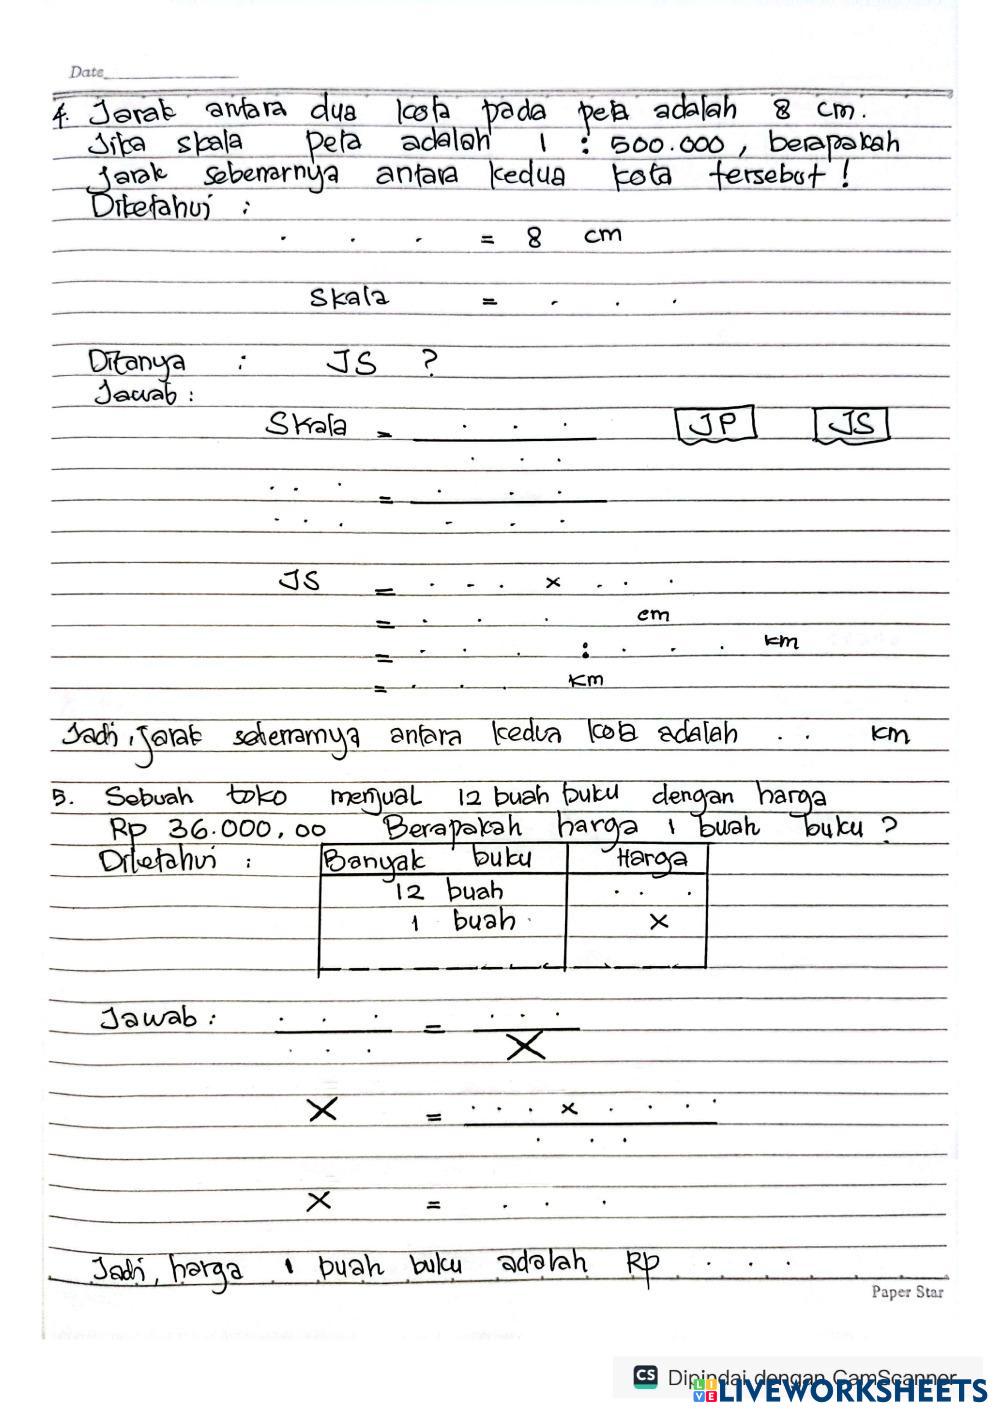 Date
4. Jarak antara dua kota pada peta adalah 8 cm.
Jika skala peta adalah 1 : 500.000, berapakah
jarak sebenarnya antara kedua kota tersebut!
Diketahui :
. . . = 8 cm
Skala = . . .
Ditanya : JS ?
Jawab :
Skala = . . . JP JS
. . .
. . . = . . .
. . . . . .
JS = . . . x . . .
= . . . cm
= . . . : . . . km
= . . . km
Jadi, jarak sebenarnya antara kedua kota adalah . . km
5. Sebuah toko menjual 12 buah buku dengan harga
Rp 36.000,00 Berapakah harga 1 buah buku ?
Diketahui : Banyak buku Harga
12 buah . . .
1 buah x
Jawab : . . . = . . .
. . . X
X = . . . x . . . .
. . .
X = . . .
Jadi, harga 1 buah buku adalah Rp . . .
Paper Star
CS Dipindai dengan CamScanner
LIVE LIVEWORKSHEETS